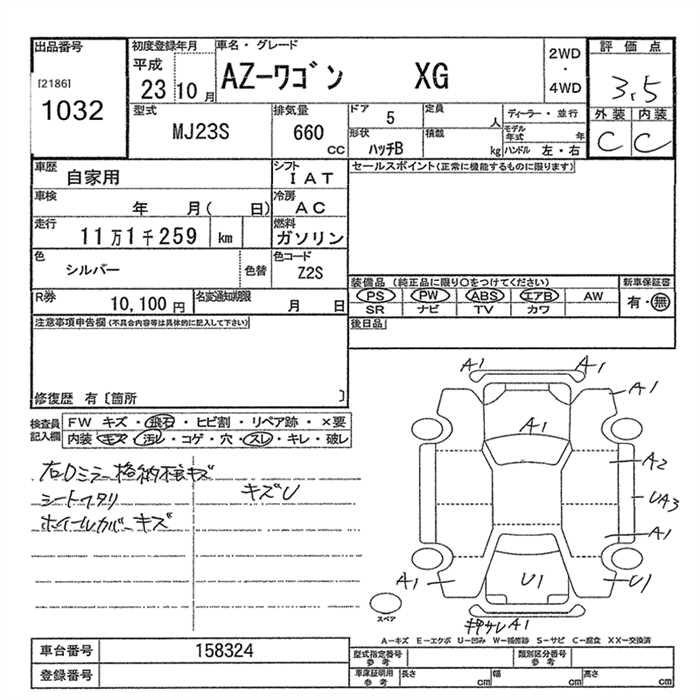 出品番号
[2186]
1032
初度登録年月
平成
23 10 月
車名・グレード
AZ-ワゴン XG
2WD
・
4WD
評価点
3,5
外装 内装
C C
型式
MJ23S
排気量
660
CC
ドア
5
定員
人
形状
ハッチB
積載
kg
ディーラー・並行
モデル年式 年
ハンドル 左・右
車歴
自家用
シフト
I A T
車検
年 月( 日)
冷房
A C
走行
11 万 1 千 259 km
燃料
ガソリン
色
シルバー
色替
色コード
Z2S
R券
10,100 円
名変通知期限
月 日
セールスポイント(正常に機能するものに限ります)
装備品 (純正品に限り○をつけてください)
PS PW ABS エアB AW
SR ナビ TV カワ
新車保証書
有・無
後日品
注意事項申告欄(不具合内容等は具体的に記入して下さい)
修復歴 有〔箇所 〕
検査員記入欄
FW キズ・飛石・ヒビ割・リペア跡・×要
内装 キズ・汚レ・コゲ・穴・スレ・キレ・破レ
右Dミラー格納不良キズ
シートヘタリ
キズU
ホイールカバーキズ
A1
A1
A1
A1
A2
UA3
A1
A1
U1
U1
A1
スペア
A-キズ E-エクボ U-凹み W-補修跡 S-サビ C-腐食 XX-交換済
車台番号
158324
登録番号
型式指定番号
参考
類別区分番号
参考
車庫証明用
参考
長さ cm
幅 cm
高さ cm